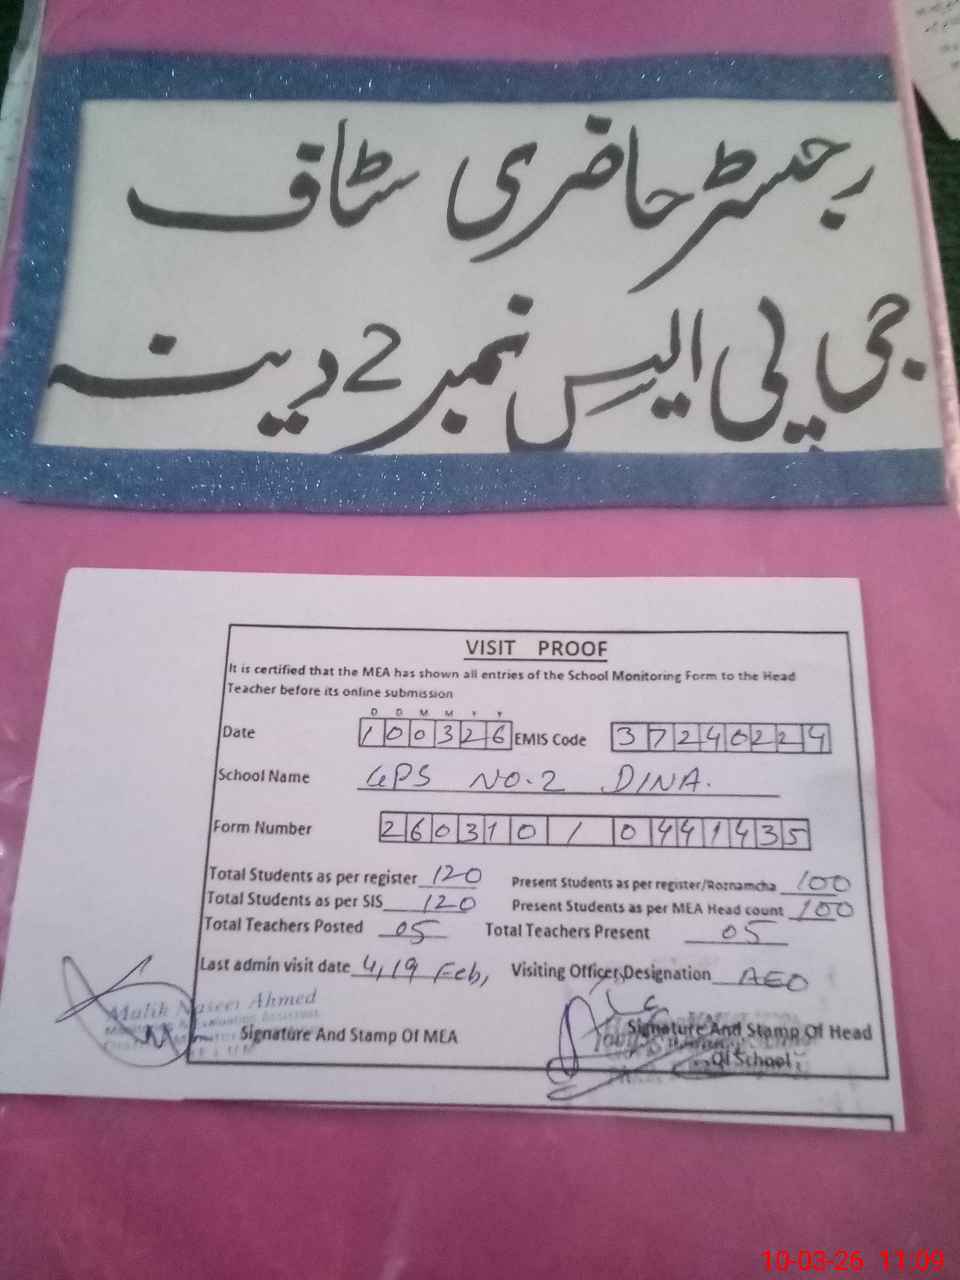 رجسٹر حاضری سٹاف
جی پی ایس نمبر 2 دینہ
VISIT PROOF
It is certified that the MEA has shown all entries of the School Monitoring Form to the Head
Teacher before its online submission
D D M M Y Y
Date 100326 EMIS Code 37240224
School Name GPS NO.2 DINA.
Form Number 260310/0441435
Total Students as per register 120 Present Students as per register/Roznamcha 100
Total Students as per SIS 120 Present Students as per MEA Head count 100
Total Teachers Posted 05 Total Teachers Present 05
Last admin visit date 4,19 Feb, Visiting Officer,Designation AEO
Malik Naseer Ahmed
Signature And Stamp Of MEA Signature And Stamp Of Head
Of School
10-03-26 11:09